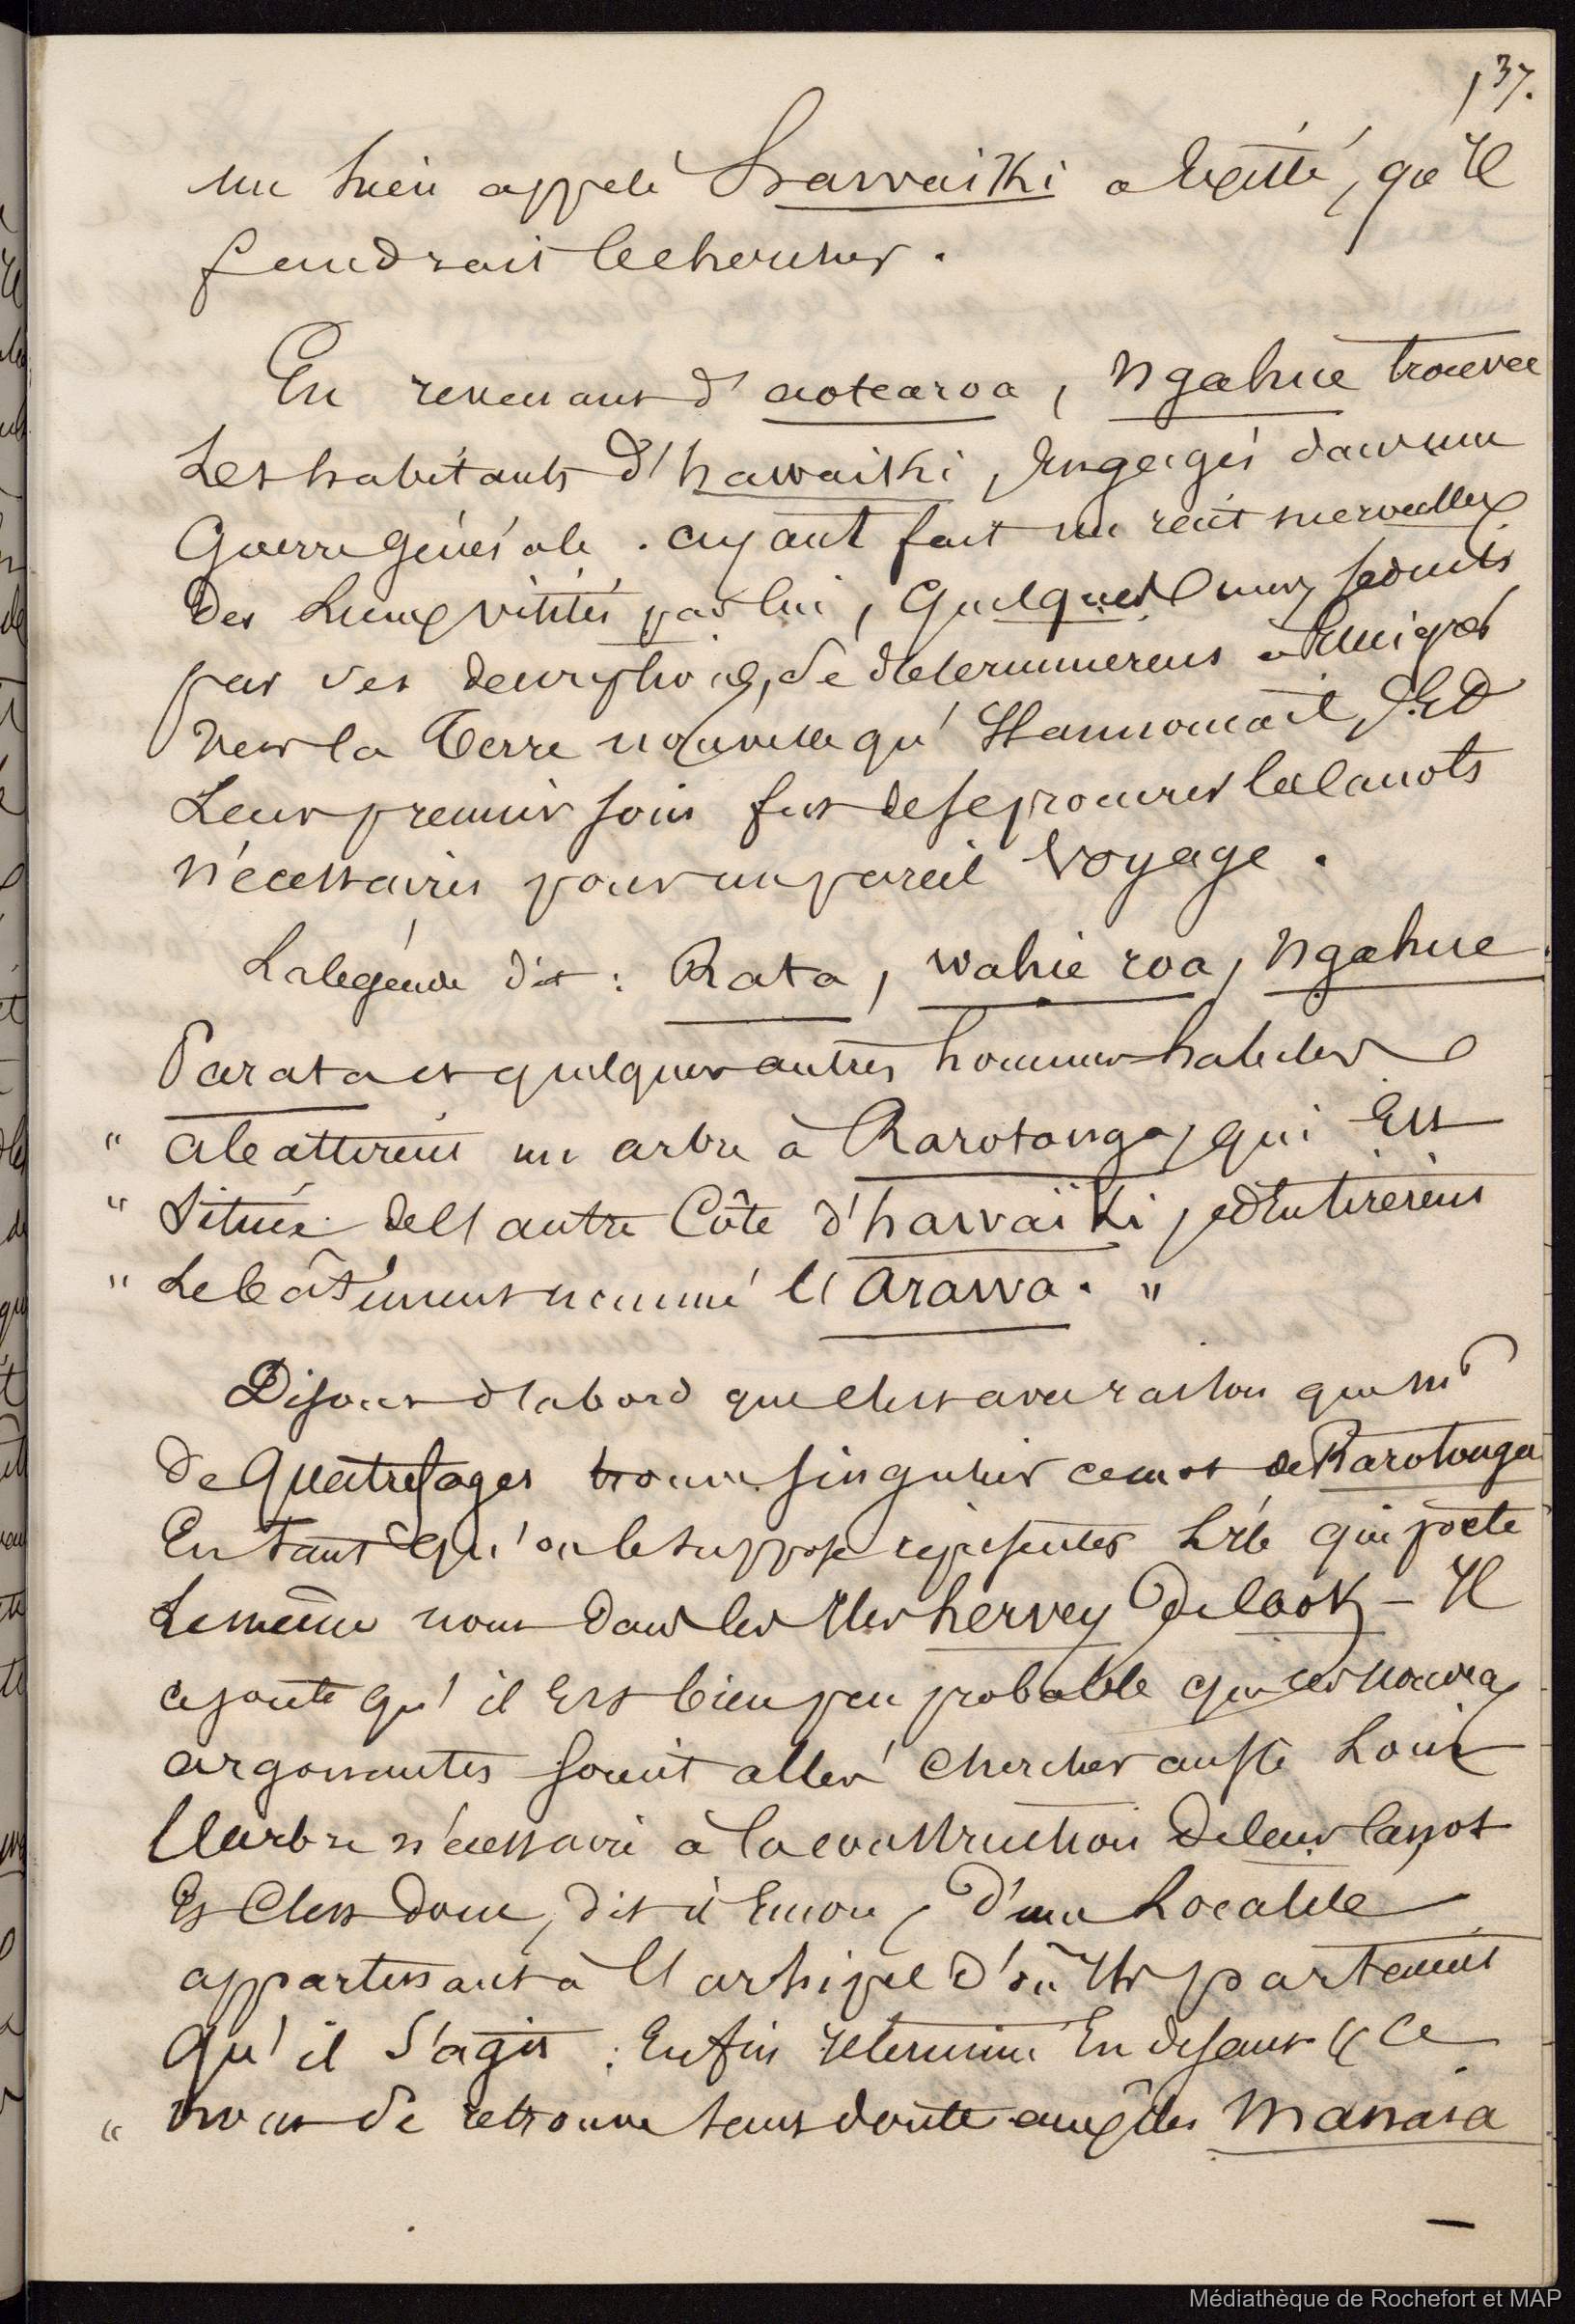 137.
un lieu appelé Hawaiki a Existé, qu'Il
faudrait le chercher.
En revenant d'aotearoa, Ngahue trouva
Les habitants d'hawaiki, Engagés dans une
Guerre générale. ayant fait un récit merveilleux
Des Lieux visités par lui, Quelques uns, séduits
par ses descriptions, se déterminèrent à Emigrer
vers la Terre nouvelle qu'Il annonçait, Et
Leur premier soin fut de se procurer les Canots
nécessaires pour un pareil Voyage.
La légende dit : Rata, wahie roa, Ngahue
Parata et quelques autres hommes habiles
" abattirent un arbre à Rarotonga, qui Est
" Situé de l'autre Côté d'hawaïki, et En tirèrent
" Le bâtiment nommé l'Arawa. "
Disons d'abord que c'est avec raison que Mr
de Quatrefages trouve singulier ce mot de Rarotonga
En Tant qu'on le suppose représenter L'île qui porte
Le même nom dans les Iles hervey de Cook – Il
ajoute qu'il Est bien peu probable que ces nouveaux
argonautes soient allés chercher aussi Loin
l'arbre nécessaire à la construction de leur Canot
Et C'est donc, dit-il Encore, d'une Localité
appartenant à l'archipel d'où Ils partaient
Qu'il s'agit : Enfin Il termine En disant " Ce
" nom se retrouve sans doute aux îles Manaia
Médiathèque de Rochefort et MAP